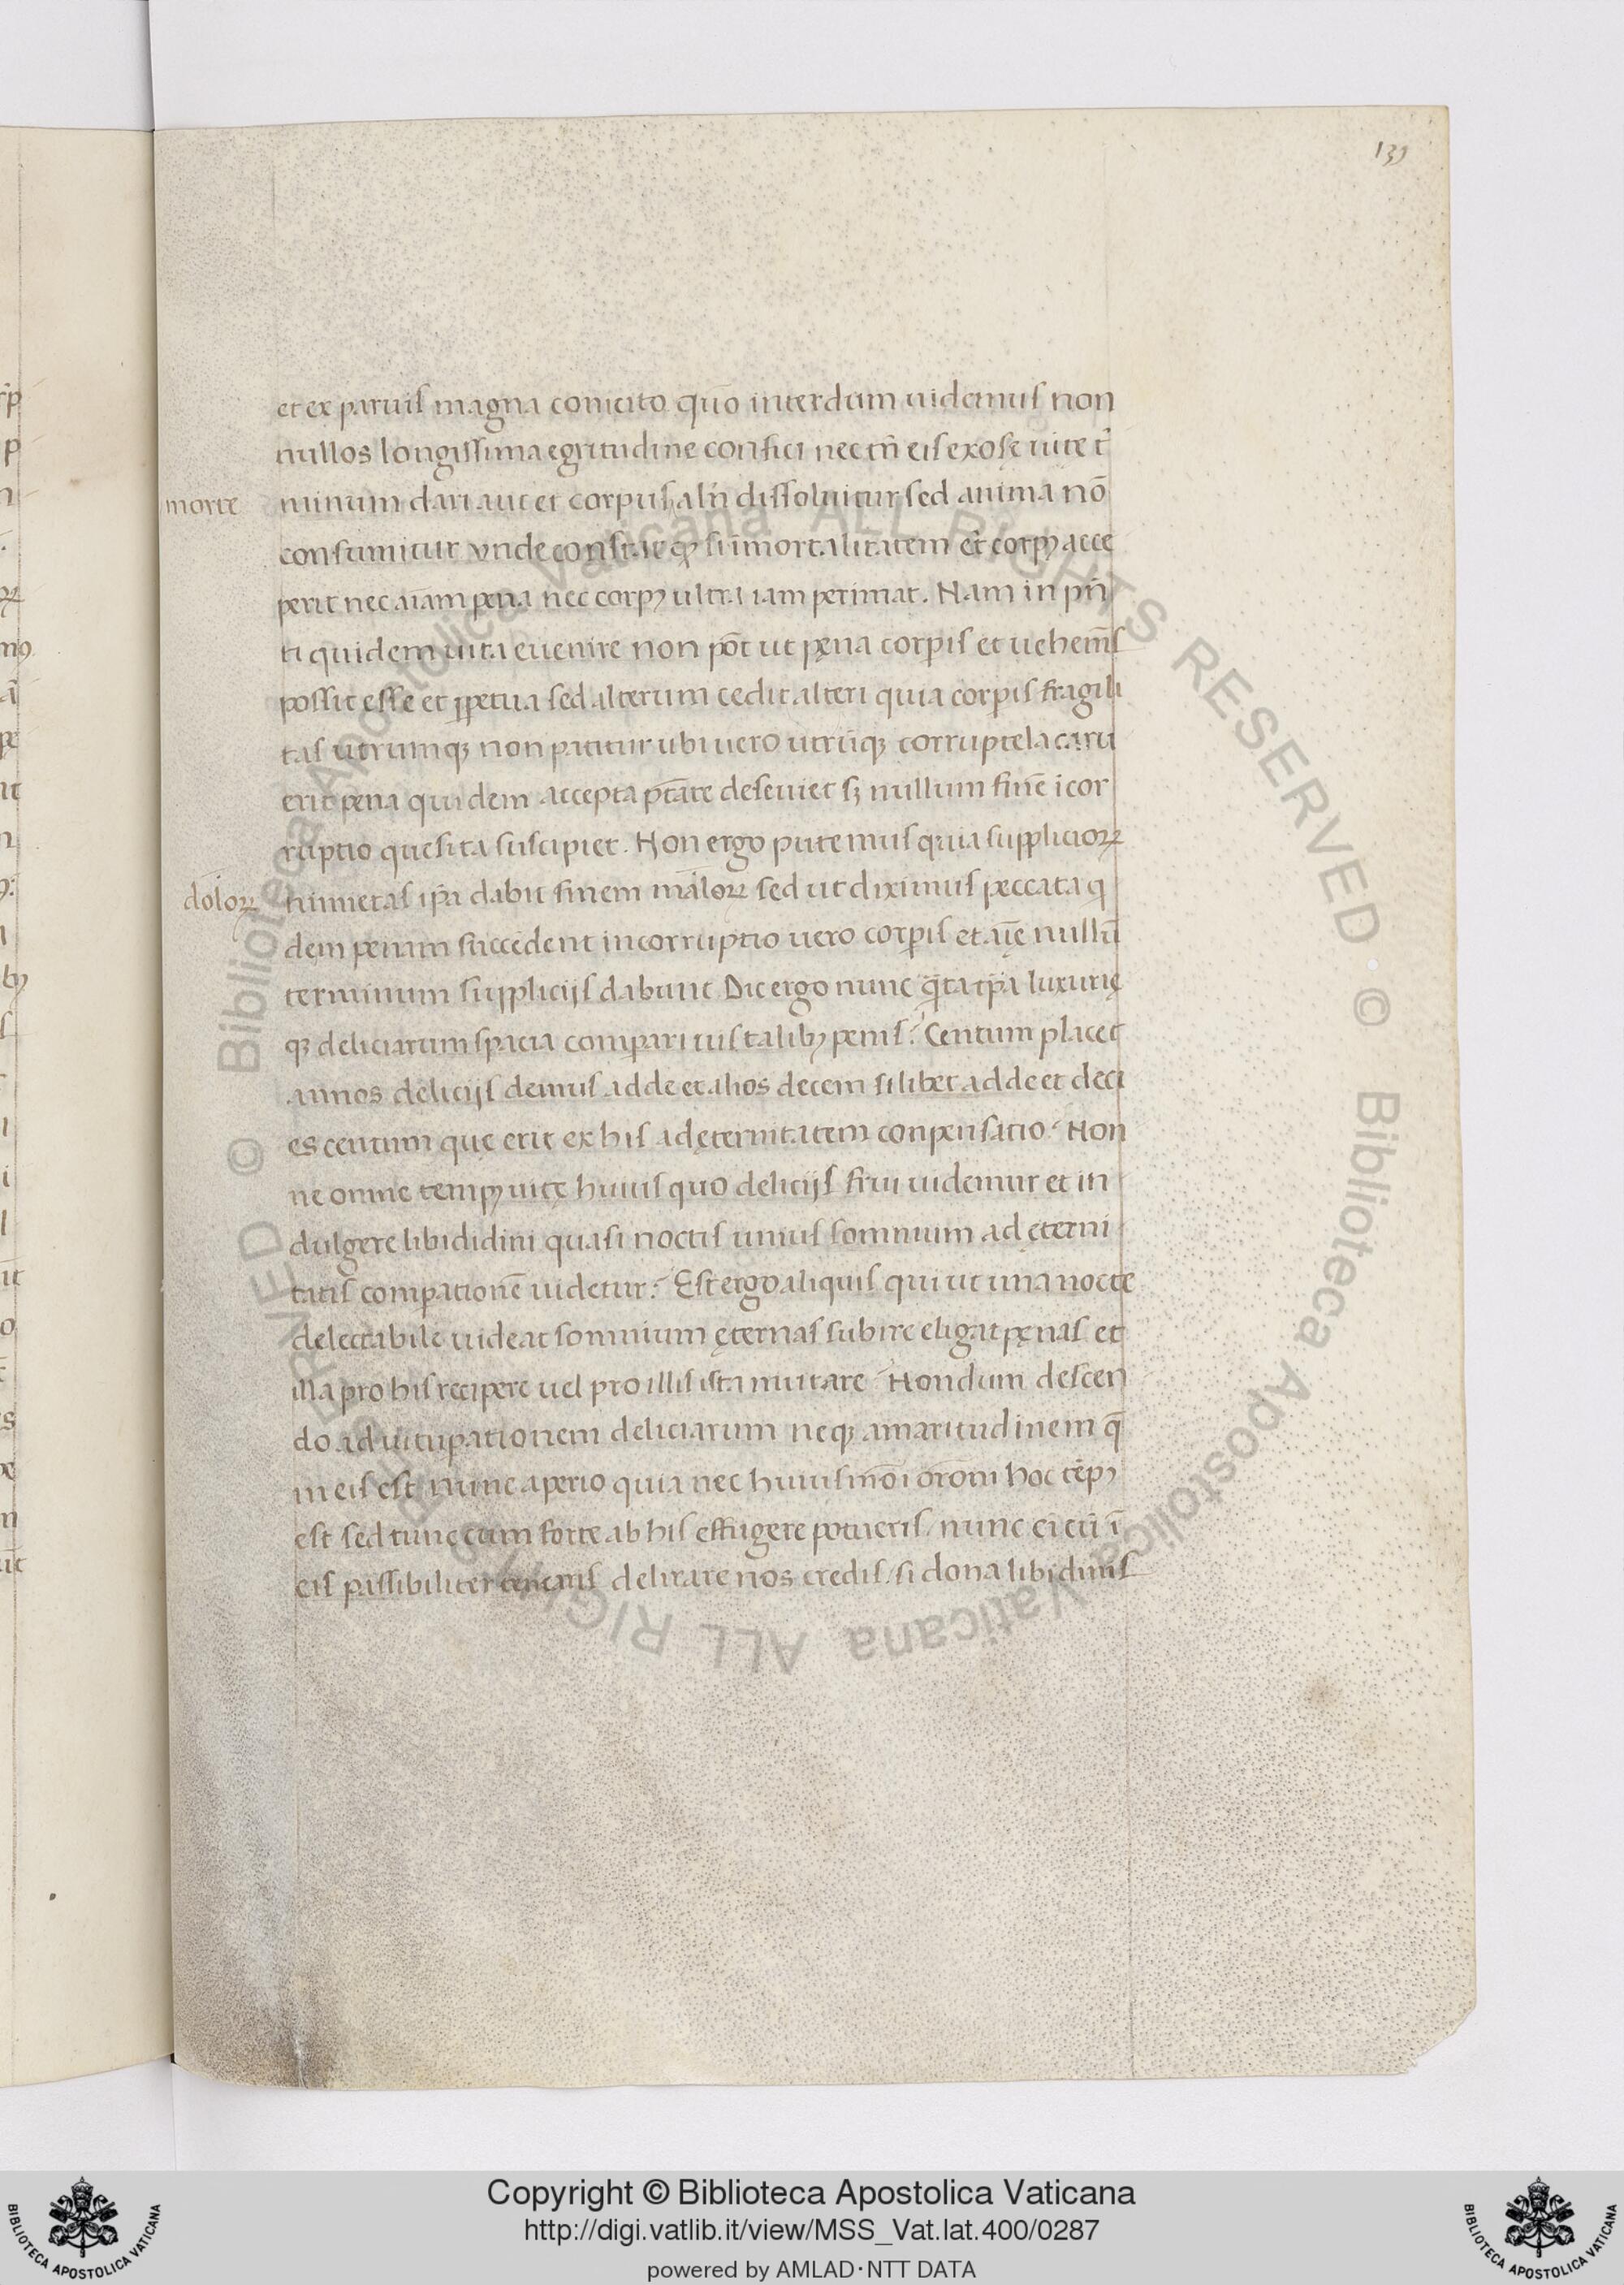 139
et ex paruis magna conicito quo interdum uidemus non
nullos longissima egritudine confici nec tn̄ eis exose uite t̄
morte
minum dari aut et corpus alr̄ dissoluitur sed anima nō
consumitur vnde constat qꝫ si īmortalitatem et corpꝰ acce
perit nec aīam pena nec corpꝰ ultra iam perimat. Nam in pn̄
ti quidem uita euenire non pōt ut pęna corꝑis et uehem̄s
possit esse et ꝑpetua sed alterum cedit alteri quia corꝑis fragili
tas utrumqꝫ non patitur ubi uero utrūqꝫ corruptela caru
erit pena quidem accepta ptāte deseuiet sꝫ nullum finē icor
ruptio quesita suscipiet. Non ergo putemus quia suppliciorꝝ
dolorꝝ
nimietas ip̄a dabit finem malorꝝ sed ut diximus peccata q
dem penam succedent incorruptio uero corꝑis et aīe nullū
terminum supplicijs dabunt Dic ergo nunc q̄ta tp̄a luxurię
qꝫ deliciarum spacia comparari uis talibꝰ penis? Centum placet
annos delicijs demus adde et alios decem si libet adde et deci
es centum que erit ex his ad ęternitatem conpensatio? Non
ne omne tempꝰ uitę huius quo delicijs frui uidemur et in
dulgere libididini quasi noctis unius somnium ad ęterni
tatis comꝑationē uidetur? Est ergo aliquis qui ut una nocte
delectabile uideat somnium ęternas subire eligat pęnas et
illa pro his recipere uel pro illis ista mutare? Nondum descen
do ad uituꝑationem deliciarum neqꝫ amaritudinem q̄
in eis est nunc aperio quia nec huiusmōi orōni hoc tēpꝰ
est sed tunc cum forte ab his effugere potueris nunc ei cū ī
eis passibiliter teneris delirare nos credis si dona libidinis
Copyright © Biblioteca Apostolica Vaticana
http://digi.vatlib.it/view/MSS_Vat.lat.400/0287
powered by AMLAD·NTT DATA